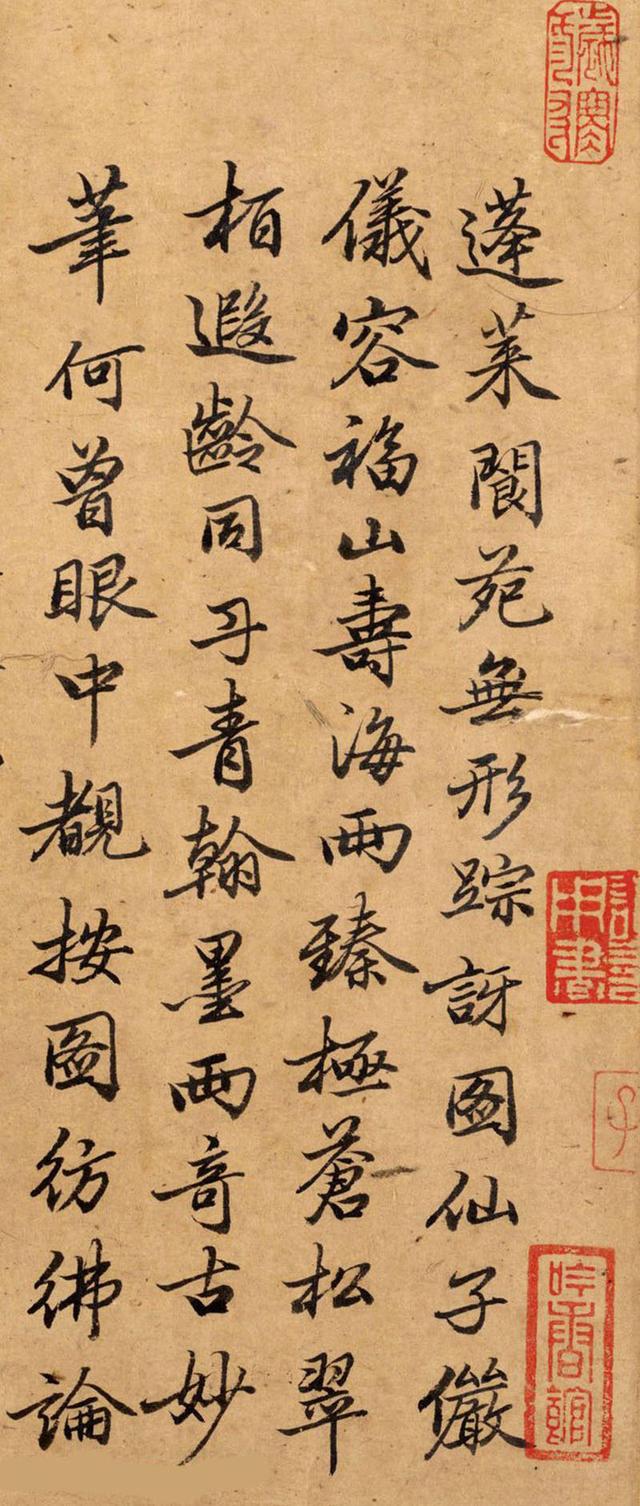 蓬萊閬苑無形踪訝圖仙子儼
儀容福山壽海兩臻極蒼松翠
栢遐齡同丹青翰墨兩奇古妙
筆何曾眼中覩按圖彷彿論
吟香館